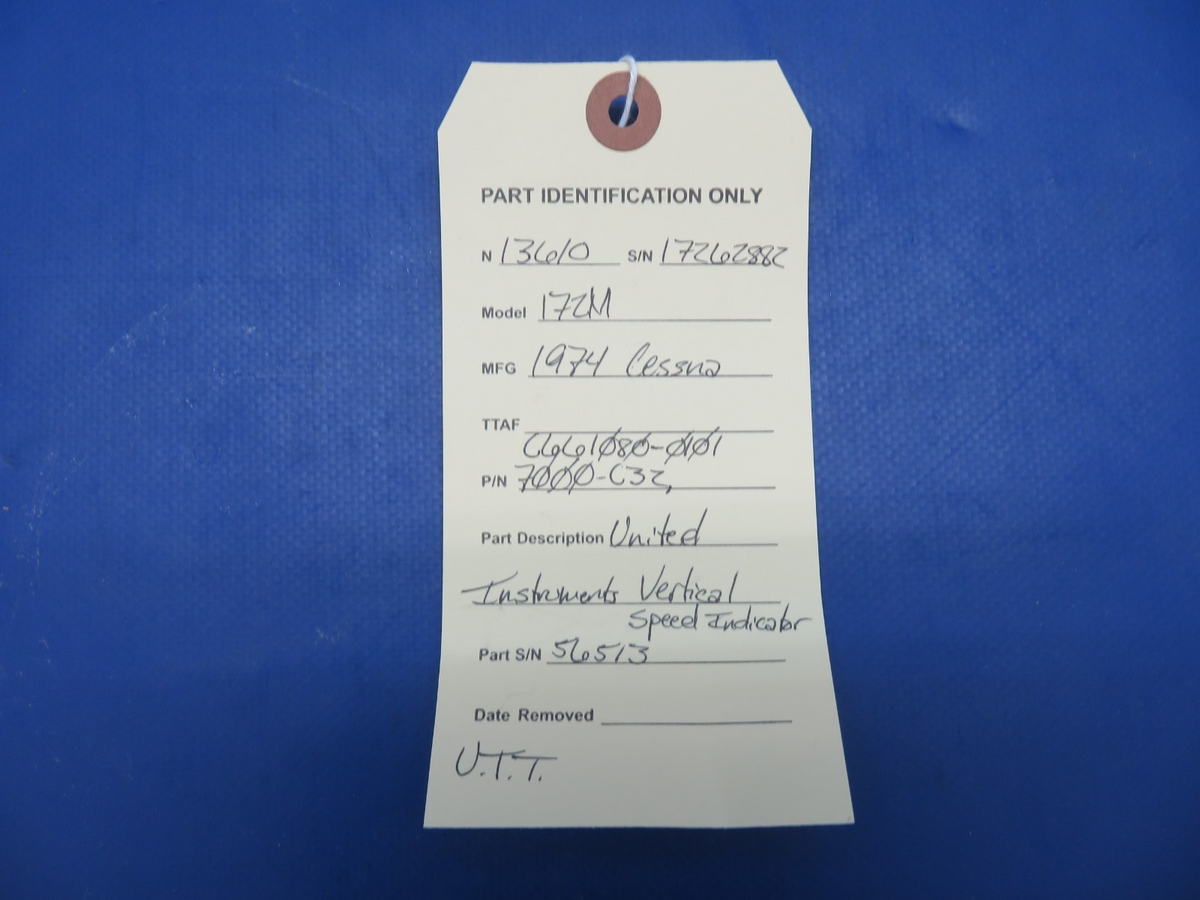 PART IDENTIFICATION ONLY
N 13610 S/N 17262882
Model 172M
MFG 1974 Cessna
TTAF
C661080-0101
P/N 7000-C32,
Part Description United
Instruments Vertical
Speed Indicator
Part S/N 56513
Date Removed
U.T.T.